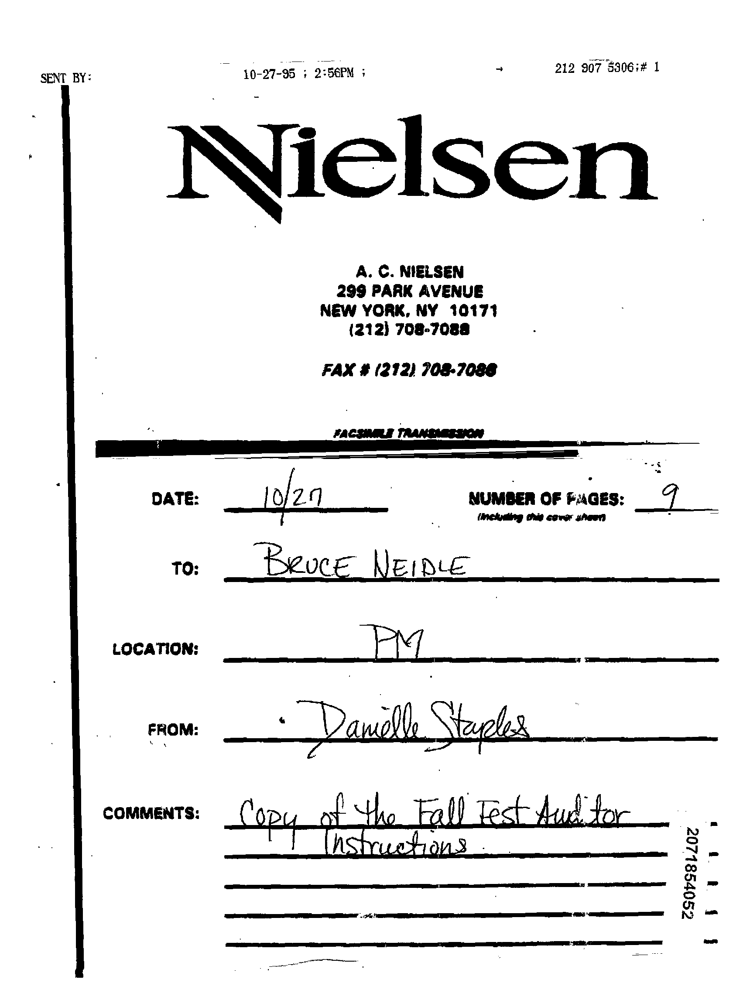 SENT BY: 10-27-95 ; 2:56PM ; → 212 907 5306;# 1
Nielsen
A. C. NIELSEN
299 PARK AVENUE
NEW YORK, NY 10171
(212) 708-7088
FAX # (212) 708-7086
FACSIMILE TRANSMISSION
DATE: 10/27 NUMBER OF PAGES: 9
(including this cover sheet)
TO: BRUCE NEIDLE
LOCATION: PM
FROM: Danielle Staples
COMMENTS: Copy of the Fall Fest Auditor
Instructions
2071854052